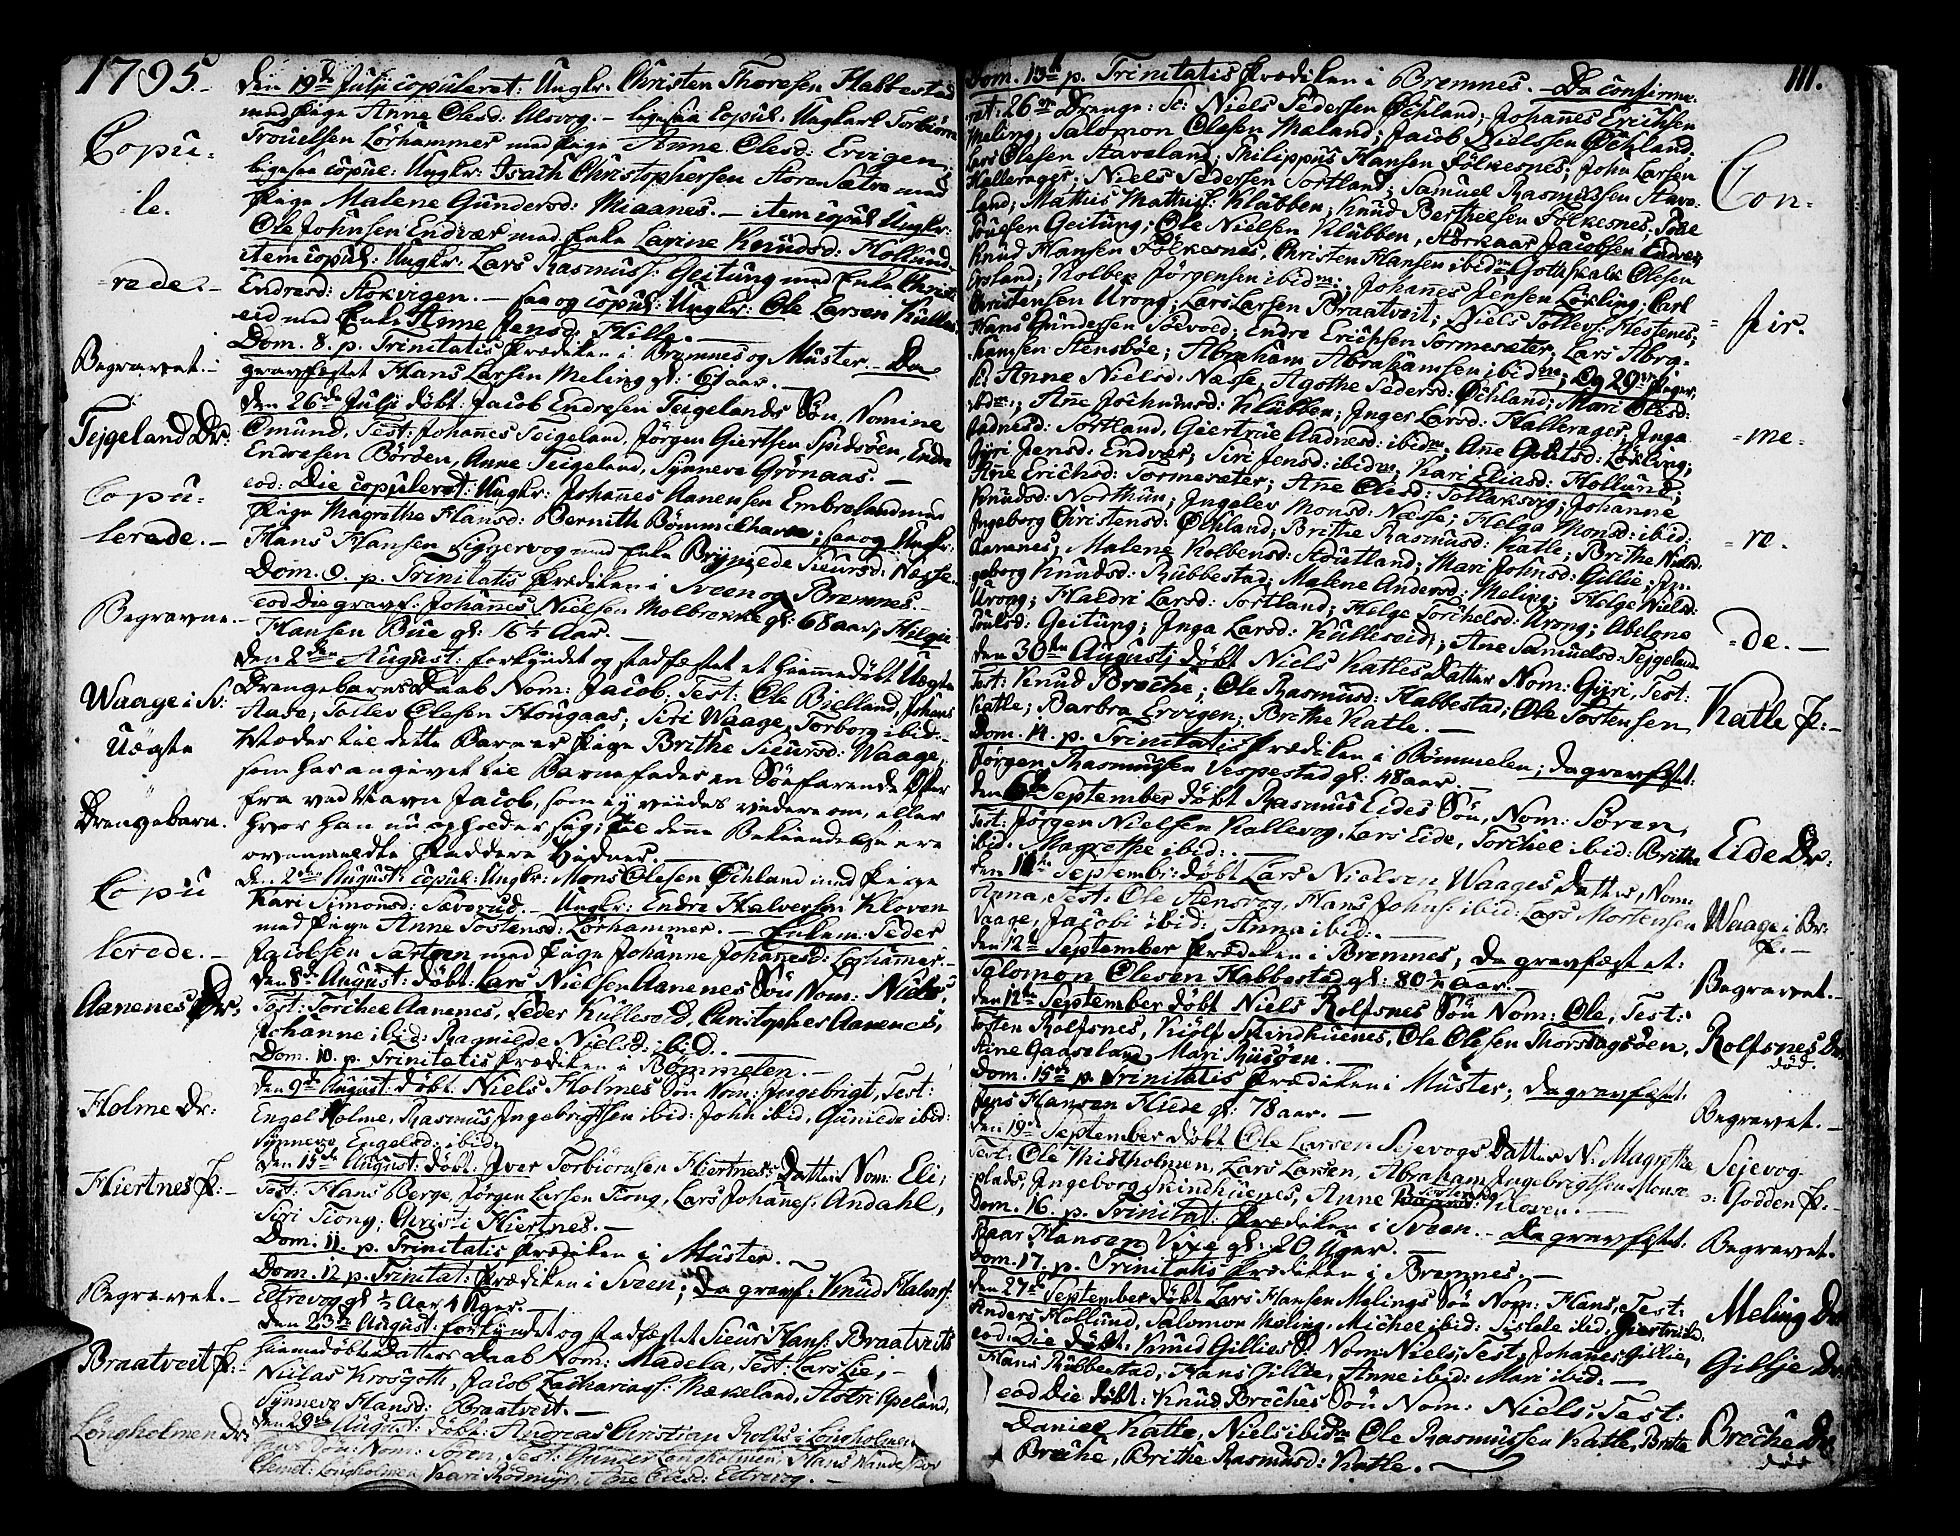 1795.
Copu:
le.
rede.
Begravet.
Tejgeland Dr:
Copu:
lerede.
Begravne.
Waage i N:
Uægte
Drengebarn.
Copu
lerede.
Aanenes Dr.
Holme Dr:
Hiertnes P:
Begravet.
Braatveit P:
Longholmen Dr:
den 19de Julji copuleret: Ungkr. Christen Thoresen Habbestad
med Pige Anne Olesd: Ulsvog. ligesaa Copul: Ungkarl Torbiörn
Trouelsen Lörhammer med Pige Anne Olesd: Ervigen;
ligesaa copul: Ungkr: Isach Christophersen Storen Sætre med
Pige Malene Gundersd: Miaanes. item copul Ungkr:
Ole Johnsen Endvær med Enke Larine Knudsd: Hollund,
item copul: Ungkr. Lars Rasmuss: Geitung med Enke Christi
Endresd: Stokvigen. saa og copul: Ungkr: Ole Larsen Kulles
eid med Enke Anne Jensd: Hille.
Dom. 8. p. Trinitatis Prædiken i Bremnes og Muster. Da
gravfæstet Hans Larsen Meling gl: 61 aar.
den 26de Julji döbt: Jacob Endresen Teigelands Sön, Nomine
Omund, Test: Johannes Teigeland, Jörgen Giertsen Spidsöen, Endre
Endresen Böröen, Anne Teigeland, Synneve Grönaas.
eod: Die copuleret: Ungkr: Johannes Aanensen Embreland med
Pige Magrethe Hansd: Bernith Bömmelhavn; saa og Ungkr:
Hans Hansen Siggervog med Enke Brynilde Siursd: Næsse.
Dom. 9. p. Trinitatis Prædiken i Sveen og Bremnes.
eod Die gravf: Johannes Nielsen Molbrekke gl: 68 aar; Helgie
Hansen Bue gl: 16½ Aar.
den 2den August: forkyndet og stadfæstet et hiemmedöbt Uægte
Drengebarns Daab Nom: Jacob. Test: Ole Bielland, Johannes
Aase, Tollev Olesen Hougaas, Siri Waage, Torborg ibid:
Moder til dette Barn er Pige Brithe Siursd: Waage,
som har angivet til Barnefader en Söefarende
fra ved Navn Jacob, som ey veides videre om, eller
hvor han nu opholder sig; til denne Bekiendelse ere
ovenmeldte Faddere Vidner.
den 2den August: copul: Ungkr: Mons Olesen Öchland med Pige
Kari Simonsd: Sæverud. Ungkr: Endre Halversen Kloven
med Pige Anne Tostensd: Lörhammer. Enkem: Peder
Jacobsen Sartöen med Pige Johanne Johannesd: Loghammer.
den 8de August: döbt: Lars Nielsen Aanenes Sön Nom: Niels,
Test: Torchel Aanenes, Peder Kulleseid, Christopher Aanenes,
Johanne ibid: Ragnilde Nielsd: ibid.
Dom. 10. p. Trinitatis Prædiken i Bömmelen.
den 9de August: döbt. Niels Holmes Sön Nom: Ingebrigt, Test:
Engel Holme, Rasmus Ingebrigtsen ibid: John ibid, Gunilde ibid:
Synneve Engelsd: ibid.
den 15de August: döbt: Iver Torbiörnsen Hiertnes Datter Nom: Eli,
Test: Hans Berge, Jörgen Larsen Tiong, Lars Johanes: Andahl,
Siri Tiong, Christi Hiertnes.
Dom. 11. p. Trinitatis Prædiken i Muster.
Dom. 12 p. Trinitat: Prædiken i Sveen; Da gravf: Knud Halvers:
Eltrevog gl ½ Aar 4 Uger.
den 23de August: forkyndet og stadfæstet Siur Hans: Braatveits
hiemedöbte Datters Daab Nom: Madela, Test: Lars Lie,
Niclas Krosgoth, Jacob Zachariass: Mækeland, Astri Apeland,
Synneve Hansd: Braatveit.
den 29de August: döbt: Andreas Christian Rolfs: Longholmens
Sön: Nom: Sören, Test: Gunder Longholmen, Hans
Longholmen, Kari Rödmyr, Ane Olesd: Eltrevog.
111.
Dom. 13de p. Trinitatis Prædiken i Bremnes. Da confirme:
ret 26 Drenge: Sc: Niels Pedersen Öchland, Johannes Erichsen
Meling, Salomon Olesen Mæland; Jacob Nielssen Öchland
Lars Olesen Aaveland; Philippus Hansen Fölkesnes, John Larsen
Hallerager; Niels Pedersen Sortland; Samuel Rasmussen Aave:
land; Mathis Mathiss: Klubben; Knud Berthelsen Folkesnes;
Povelsen Geitung; Ole Nielsen Klubben, Aschaar Jacobsen Endvær
Knud Hansen Folkesnes, Christen Hansen ibidm Gothskalk Olesen
Opsland, Kolben Jörgensen ibidm; Johannes Jensen Löxling; Carl
Christensen Urang; Lars Larsen Braatveit; Niels Tollevs: Hestenes;
Hans Gundersen Söevold; Endre Erichsen Tormesæter, Lars Abra:
hamsen Stensböe; Abraham Abrahamsen ibidm; Og 29 Piger,
Sc: Anne Nielsd: Næsse, Agothe Pedersd: Öchland; Mari Olesd:
ibidm; Ane Jochumsd: Klubben; Inger Larsd: Hallerager, Inga
Aadnesd: Sortland, Giertrue Aadnesd: ibidm; Ane Golitsd: Löxling;
Gyri Jensd: Endvær; Siri Jensd: ibidm; Kari Eliasd: Hollund;
Ane Erichsd: Tormesæter; Ane Olesd: Tollaksvog; Johanne
Knudsd: Nordthun; Ingelev Monsd: Næsse; Helga Monsd: ibid:
Ingeborg Christensd: Öchland; Brithe Rasmusd: Katle; Brithe Nielsd:
Aanenes; Malene Kolbensd: Stoutland; Mari Johnsd: Gillie; In:
geborg Knudsd: Rubbestad; Malene Andersd: Meling; Helge Nielsd:
Urang; Haldri Larsd: Sortland; Helge Torchelsd: Urang; Abelone
Poulsd: Geitung; Inga Larsd: Kullesseid; Ane Samuelsd: Tejgeland.
den 30te Augustj döbt Niels Katles Datter Nom: Gyri, Test:
Knud Broche; Ole Rasmusd: Habbestad; Ole Tostensen
Katle; Barbra Ervigen; Brithe Katle.
Dom. 14. p. Trinitatis Prædiken i Bömmelen; da gravfæstet.
Jörgen Rasmussen Vespestad gl: 48 aar.
den 6te September döbt Rasmus Eides Sön, Nom: Sören,
Test: Jörgen Nielsen Kallevog, Lars Eide, Torchel ibid: Brithe
ibid. Magrethe ibid:
den 11te Septembr: döbt Lars Nielsen Waages Datter, Nom:
Anna, Test: Ole Stensvog, Hans Johns: ibid: Lars Mortensen
Vaage, Jacobi ibid: Anna ibid:
den 12te September Prædiken i Bremnes, da gravfæstet:
Salomon Olesen Habbestad gl: 80½ aar.
den 12te September döbt Niels Rolfsnes Sön Nom: Ole, Test:
Tosten Rolfsnes, Kiölf Skindhuenes, Ole Olesen Thorsdagsöen,
Stine Gaaseland, Mari Riisöen.
Dom. 15de p. Trinitatis Prædiken i Muster, da gravfæst.
Jens Hansen Hiede gl: 78 aar.
den 19de September döbt Ole Larsen Sejevogs Datter N: Magrethe
Test: Ole Midtholmen, Lars Larsen, Abraham Ingebrigtsen Monse
plads, Ingeborg Skindhuenes, Anne Kloven.
Dom. 16. p. Trinitat: Prædiken i Sveen. Da gravfæstet.
Baar Hansen Vixe gl: 20 Uger.
Dom. 17. p. Trinitatis Prædiken i Bremnes.
den 27de September döbt Lars Hansen Melings Sön Nom: Hans, Test:
Anders Hollund, Salomon Meling, Michel ibid: Sislele ibid, Giertrude ibid.
eod: Die döbt: Knud Gillies S. Nom: Niels, Test, Johanes Gillie,
Hans Rubbestad, Hans Jillie, Anne ibid: Mari ibid:
eod Die döbt: Knud Broches Sön Nom: Niels, Test:
Daniel Katle, Niels ibidm Ole Rasmussen Katle, Brite
Broche, Brithe Rasmusd: Katle.
Con:
fir.
me:
re.
de.
Katle P:
Eide Dr:
Waage i Br:
P.
Begravet.
Rolfsnes Dr
död.
Begravet.
Sejevog
Godden P:
Begravet.
Meling Dr
Gillje Dr:
Broche Dr
död